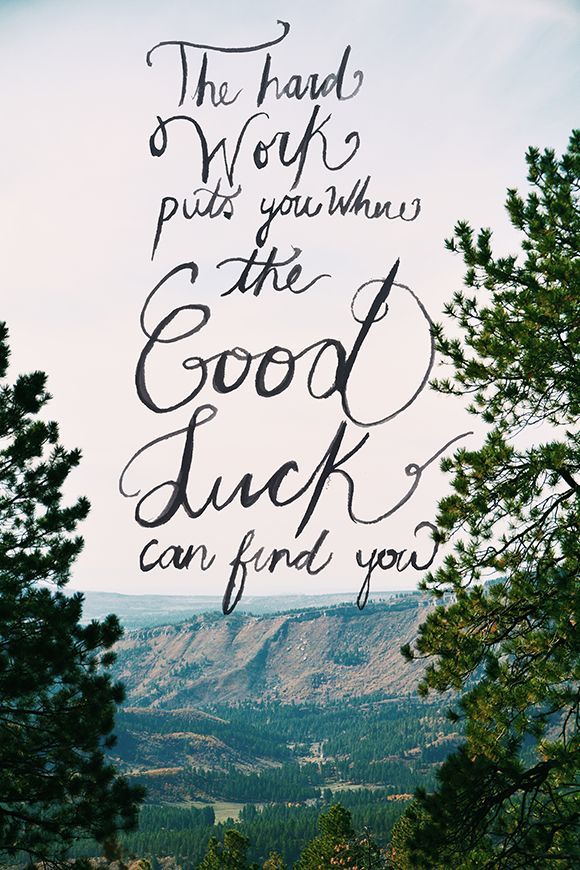 The hard
Work
puts you Where
the
Good
Luck
can find you